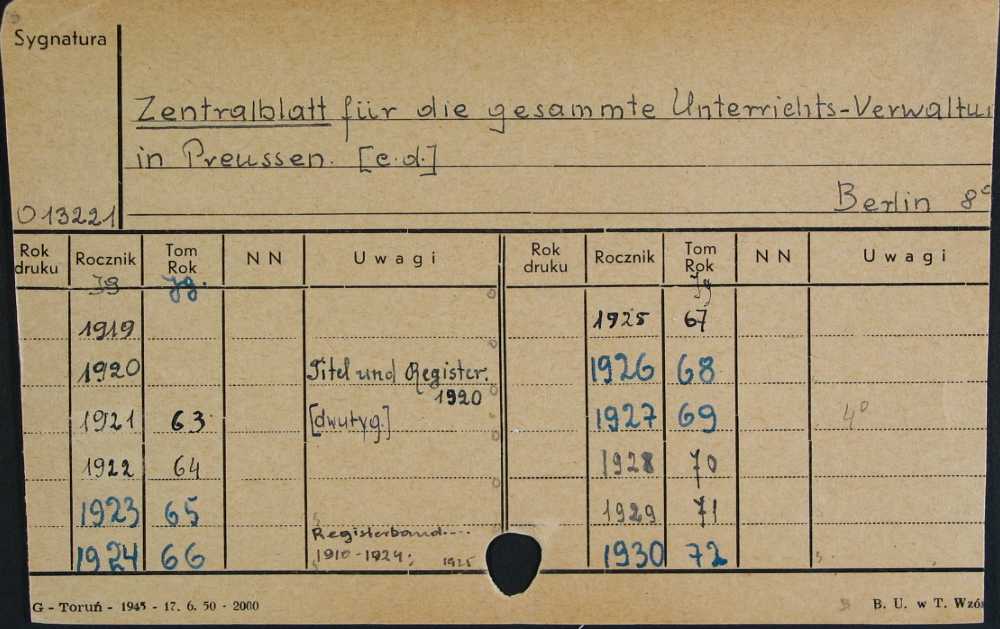 Sygnatura
Zentralblatt für die gesammte Unterrichts-Verwaltu
in Preussen. [c.d.]
O 13221
Berlin 8°
Rok druku Rocznik Tom Rok N N Uwagi Rok druku Rocznik Tom Rok N N Uwagi
Jg Jg. Jg
1919 1925 67
1920 Titel und Register. 1920 1926 68
1921 63 [dwutyg.] 1927 69 4°
1922 64 1928 70
1923 65 1929 71
1924 66 Registerband 1910-1924; 1925 1930 72
G - Toruń - 1945 - 17. 6. 50 - 2000 B. U. w T. Wzór